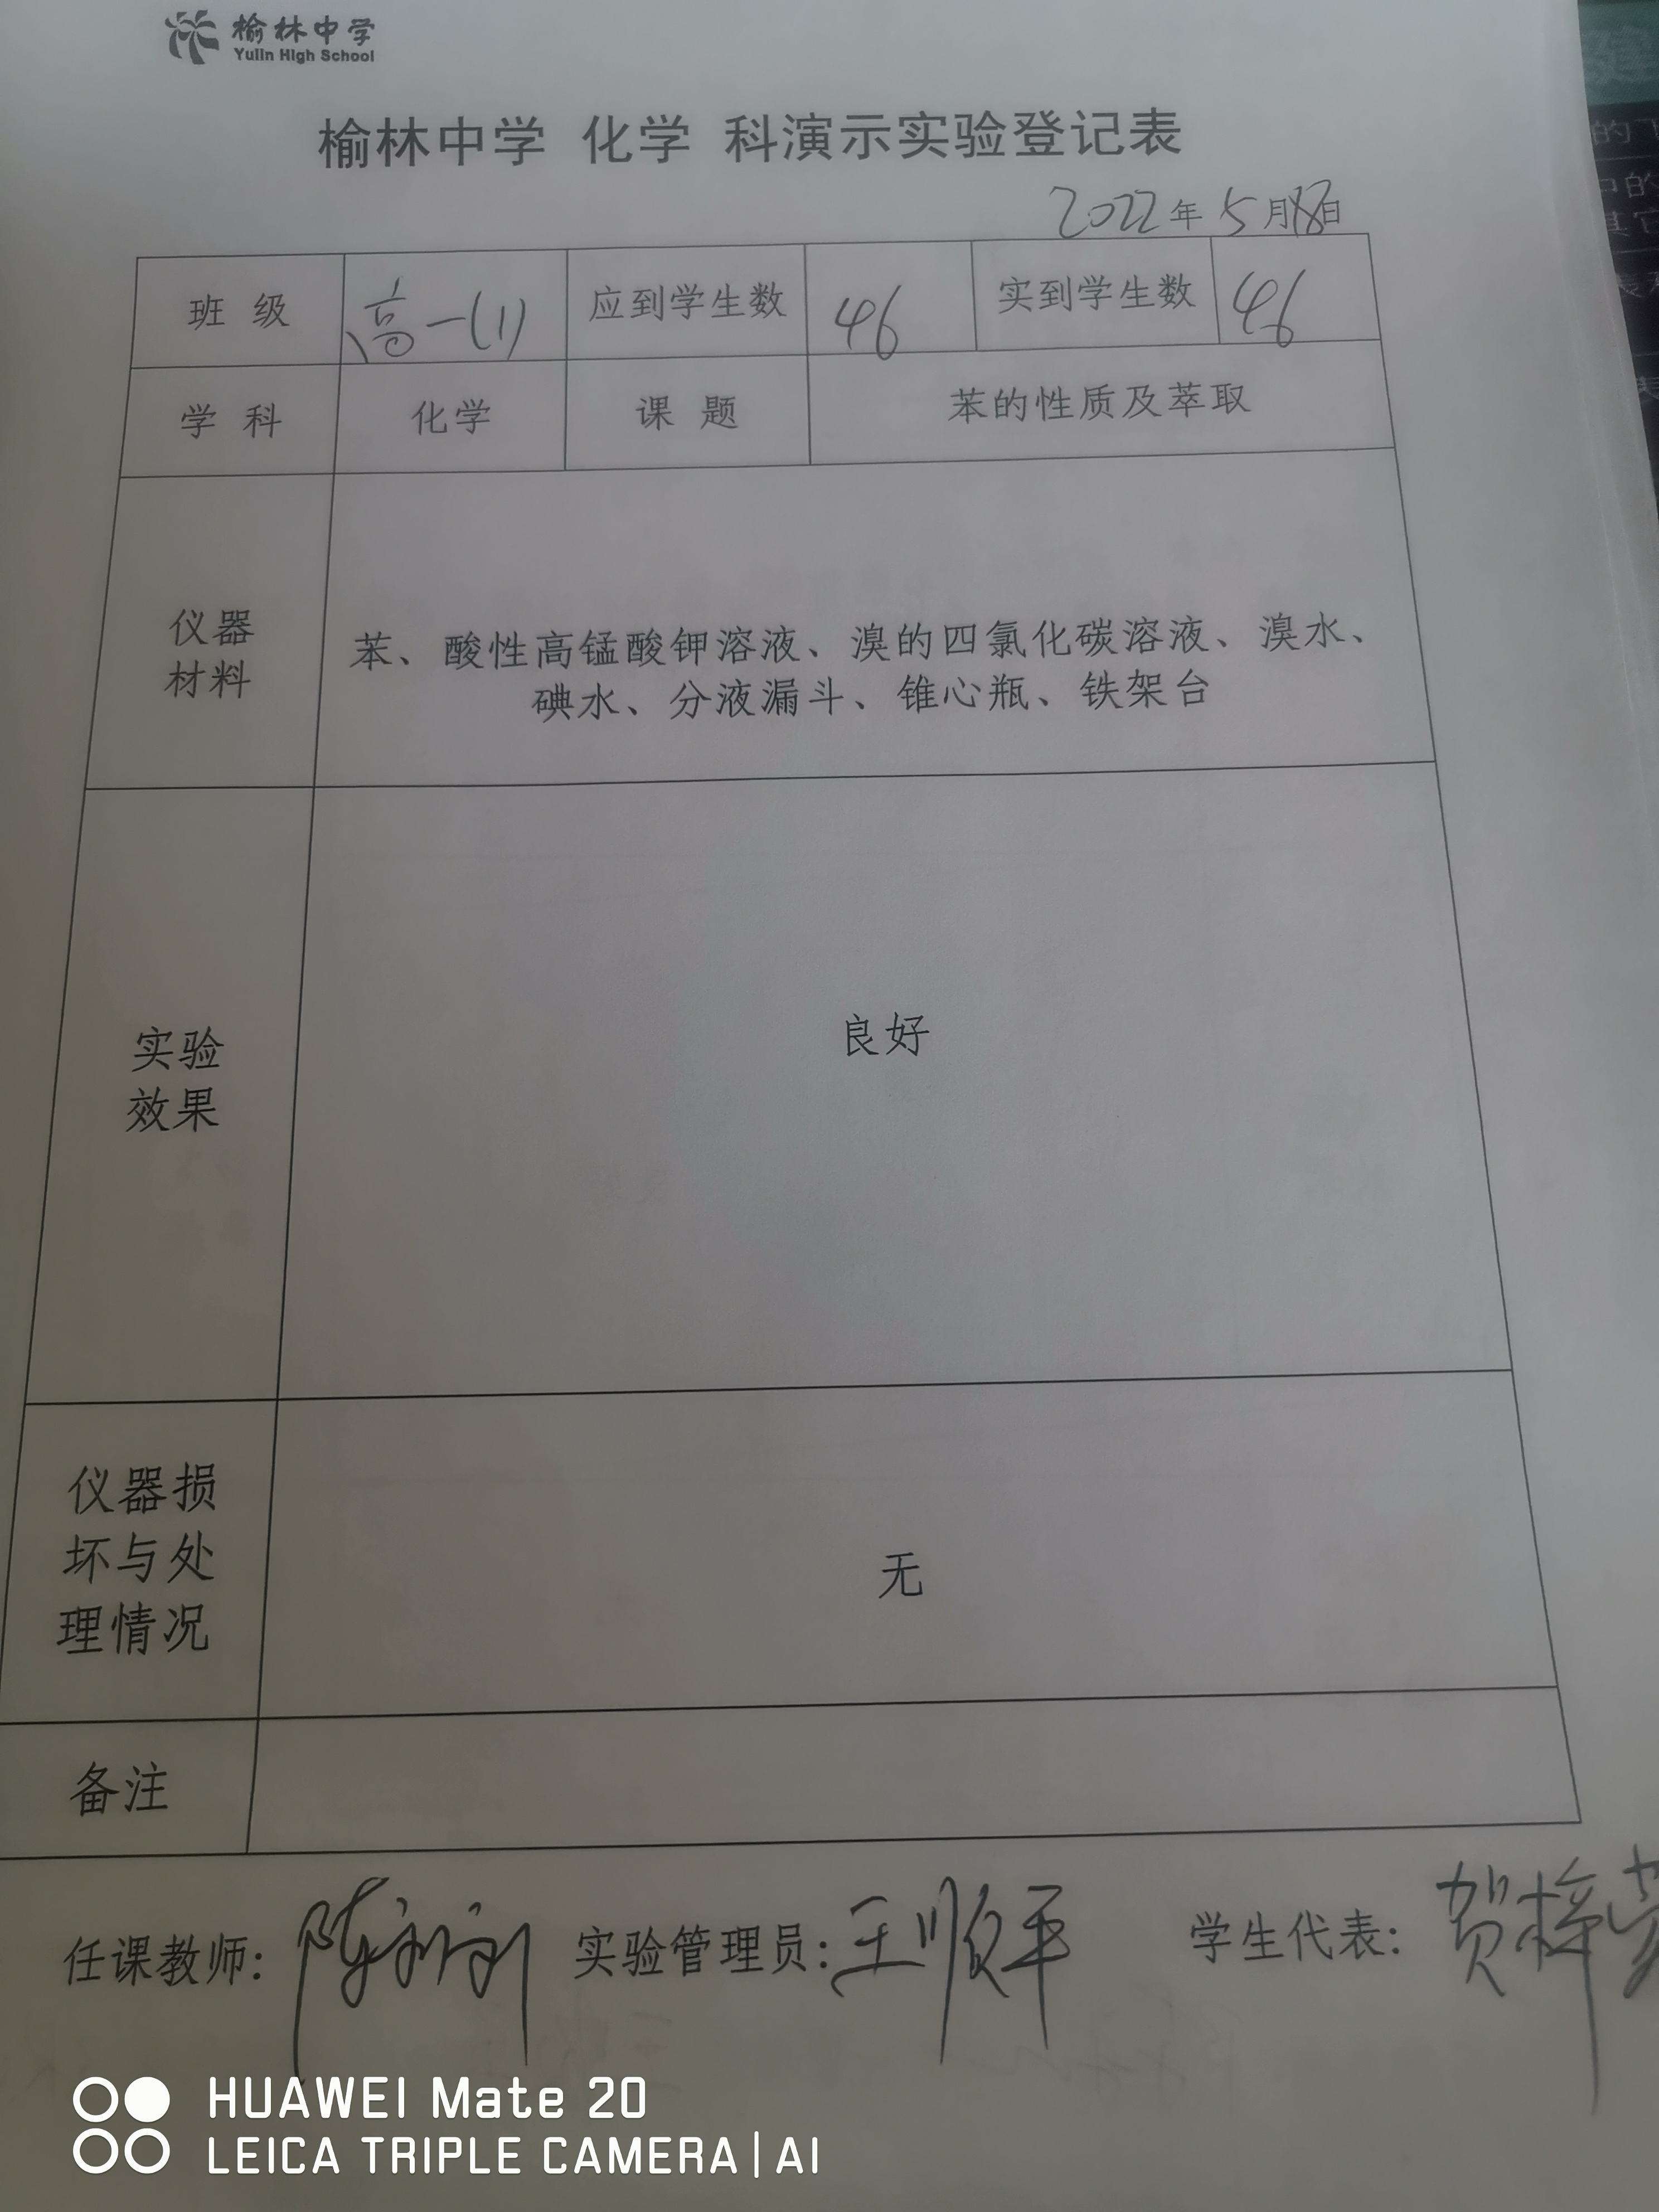 榆林中学
Yulin High School
榆林中学 化学 科演示实验登记表
2022年5月18日
班 级 高一(1) 应到学生数 46 实到学生数 46
学 科 化学 课 题 苯的性质及萃取
仪器
材料
苯、酸性高锰酸钾溶液、溴的四氯化碳溶液、溴水、
碘水、分液漏斗、锥心瓶、铁架台
实验
效果
良好
仪器损
坏与处
理情况
无
备注
任课教师： 实验管理员：王顺平 学生代表：贺梓
HUAWEI Mate 20
LEICA TRIPLE CAMERA | AI